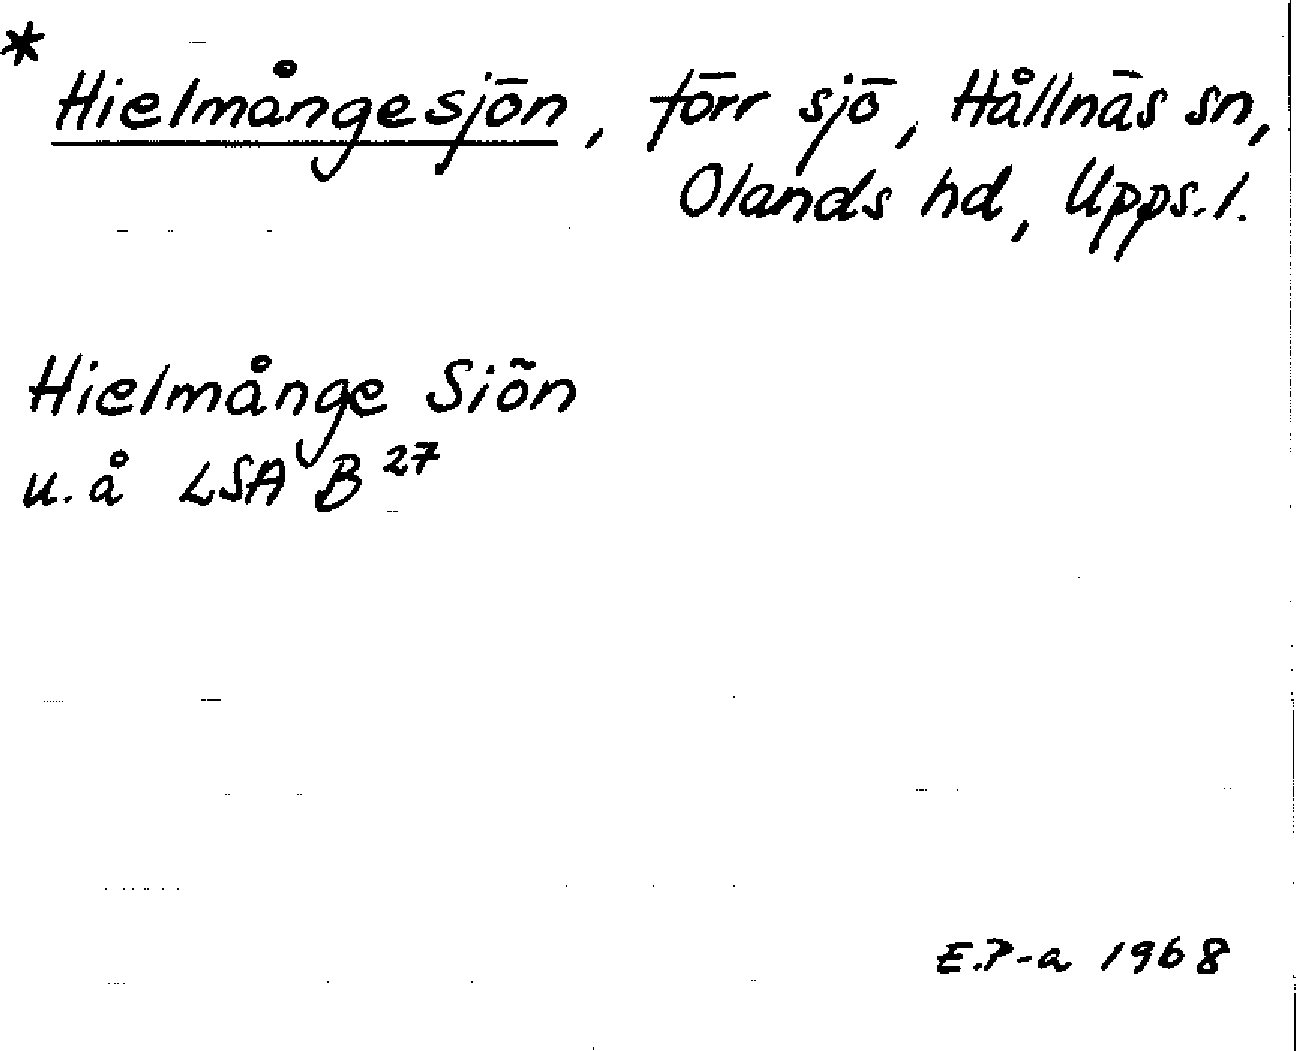 * Hielmångesjön, förr sjö, Hållnäs sn,
Olands hd, Upps. l.
Hielmånge Siön
u. å LSA B 27
E.P-a 1968